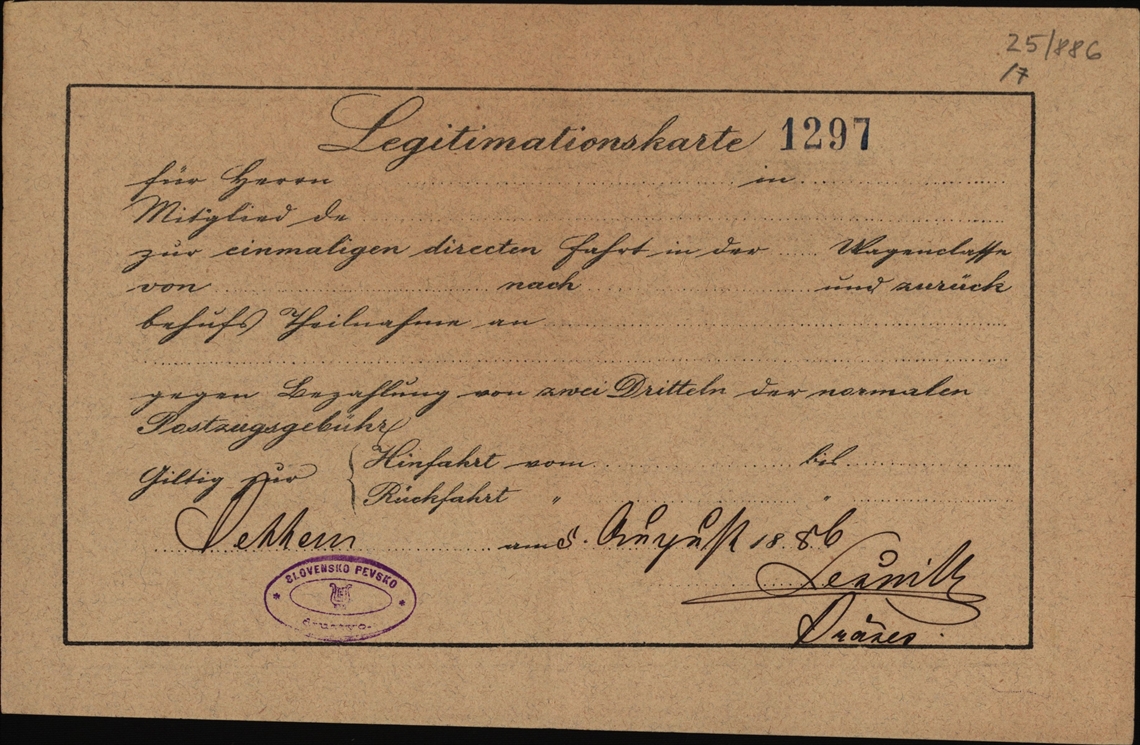 25/886
/7
Legitimationskarte 1297
für Herrn in
Mitglied de
zur einmaligen directen Fahrt in der Wagenclasse
von nach und zurück
behufs Theilnahme an
gegen Bezahlung von zwei Dritteln der normalen
Postzugsgebühr
Giltig zur
Hinfahrt vom bis
Rückfahrt " "
am 8. August 1886
SLOVENSKO PEVSKO
društvo
Präses.